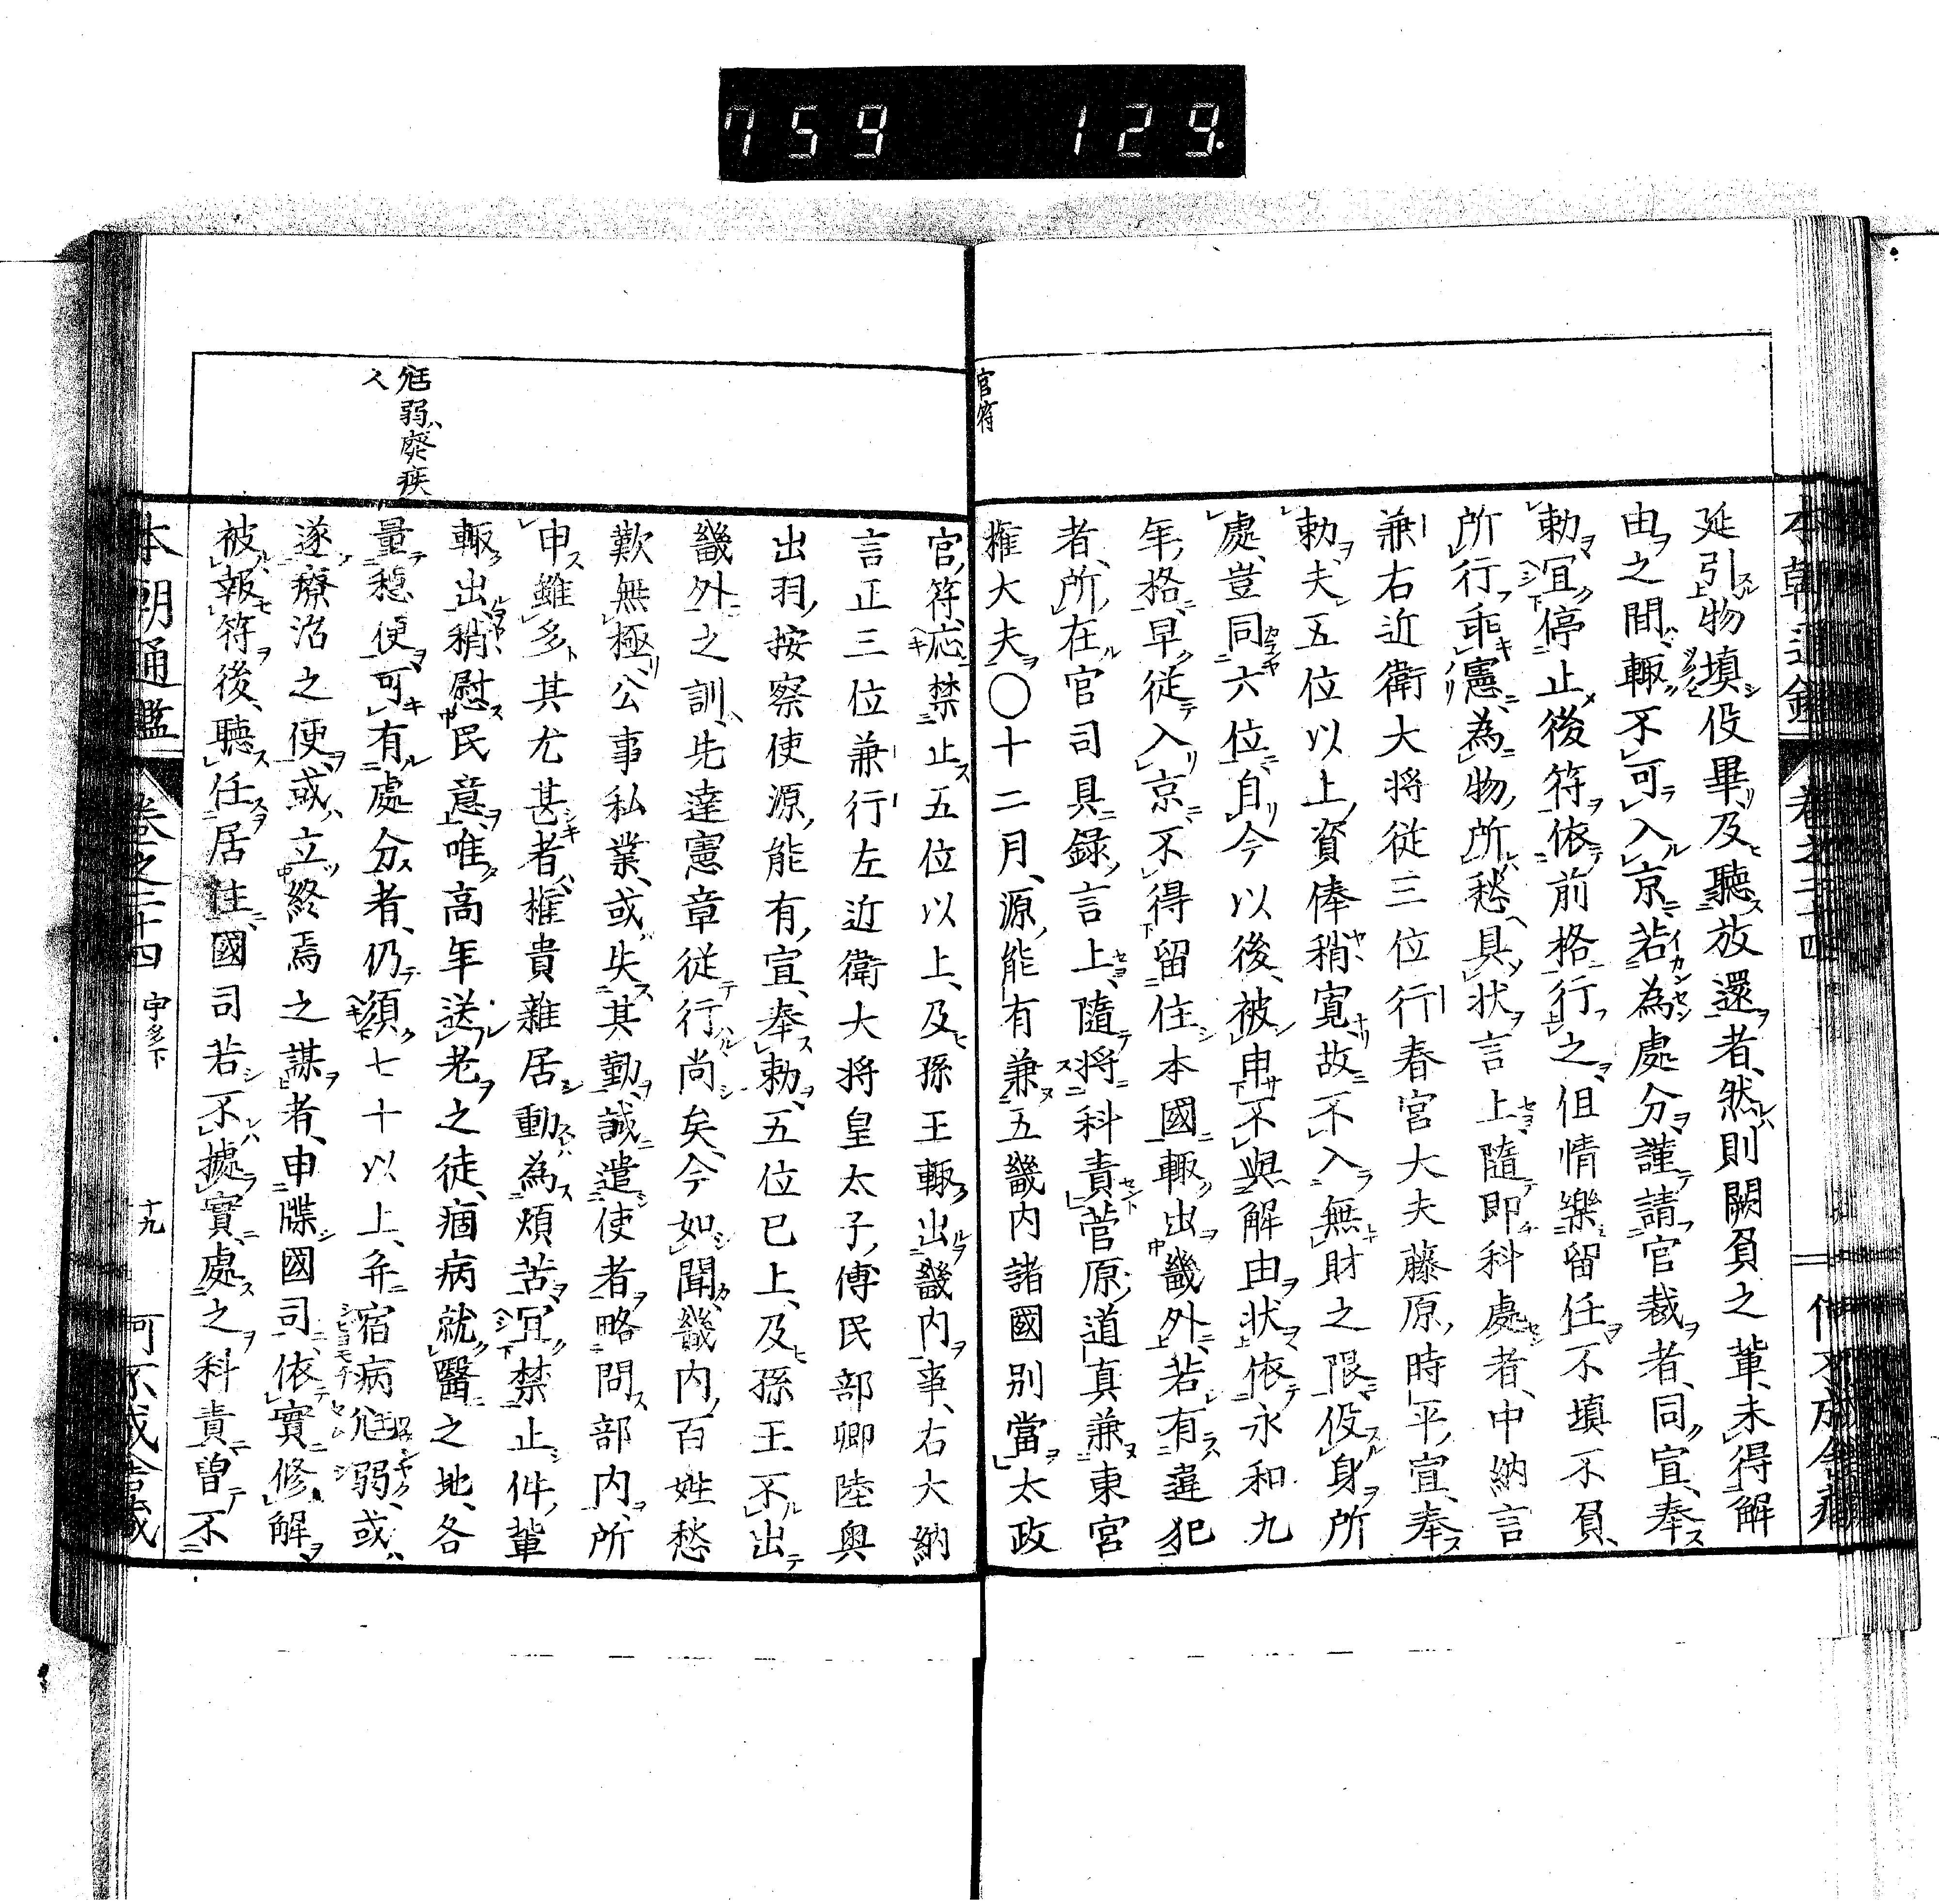 759 129.
官符
延引物填役畢及聽放還者然則闕負之輩未得解
由之間輙不可入京若為處分謹請官裁者同宣奉
勅冝停止後符依前格行之但情樂留任不填不負
所行乖憲為物所愁具状言上隨即科處者中納言
兼右近衛大将從三位行春宮大夫藤原時平宣奉
勅夫五位以上資俸稍寛故不入無財之限役身所
處豈同六位自今以後被申不與解由状依永和九
年格早從入京不得留住本國輙出畿外若有違犯
者所在官司具録言上隨将科責菅原道真兼東宮
権大夫〇十二月源能有兼五畿内諸國别當太政
尩弱癈疾
人
官符応禁止五位以上及孫王輙出畿内事右大納
言正三位兼行左近衛大将皇太子傅民部卿陸奥
出羽按察使源能有宣奉勅五位已上及孫王不出
畿外之訓先達憲章從行尚矣今如聞畿内百姓愁
歎無極公事私業或失其勤誠遣使者略問部内所
申雖多其尤甚者權貴雜居動為煩苦冝禁止件輩
輙出稍慰民意唯高年送老之徒痼病就醫之地各
量穏便可有處分者仍須七十以上并宿病尩弱或
遂療治之便或立終焉之謀者申牒國司依實修解
被報符後聽任居住國司若不據實處之科責曽不
本朝通鑑 卷之二十四 宇多下 十九